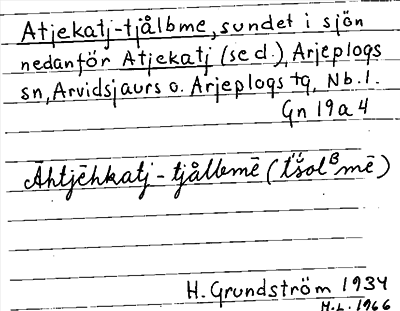 Atjekatj-tjålbme, sundet i sjön
nedanför Atjekatj (se d.), Arjeplogs
sn, Arvidsjaurs o. Arjeplogs tg, Nb. l.
Gn 19 a 4
Āhtjēhkatj - tjålbmē (t'šolᴮmē)
H. Grundström 1934
H.L. 1966